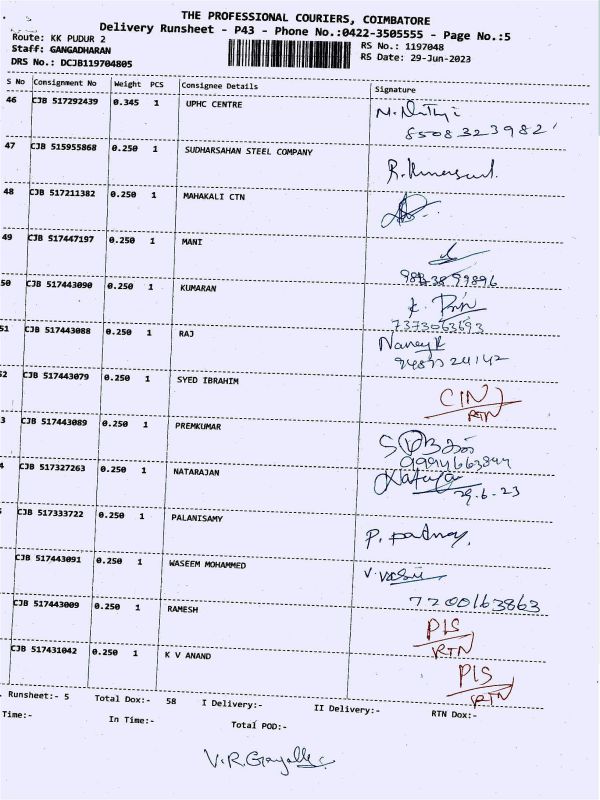 THE PROFESSIONAL COURIERS, COIMBATORE
Delivery Runsheet - P43 - Phone No.:0422-3505555 - Page No.:5
Route: KK PUDUR 2
RS No.: 1197048
Staff: GANGADHARAN
RS Date: 29-Jun-2023
DRS No.: DCJB119704805
S No Consignment No Weight PCS Consignee Details Signature
46 CJB 517292439 0.345 1 UPHC CENTRE
8508323982
47 CJB 515955868 0.250 1 SUDHARSAHAN STEEL COMPANY
48 CJB 517211382 0.250 1 MAHAKALI CTN
49 CJB 517447197 0.250 1 MANI
50 CJB 517443090 0.250 1 KUMARAN
7373063693
51 CJB 517443088 0.250 1 RAJ
52 CJB 517443079 0.250 1 SYED IBRAHIM
RTN
3 CJB 517443089 0.250 1 PREMKUMAR
4 CJB 517327263 0.250 1 NATARAJAN
29.6-23
CJB 517333722 0.250 1 PALANISAMY
CJB 517443091 0.250 1 WASEEM MOHAMMED
7200163863
CJB 517443009 0.250 1 RAMESH
PIS
RTN
CJB 517431042 0.250 1 K V ANAND
PIS
RTN
. Runsheet:- 5 Total Dox:- 58 I Delivery:- II Delivery:- RTN Dox:-
Time:- In Time:- Total POD:-